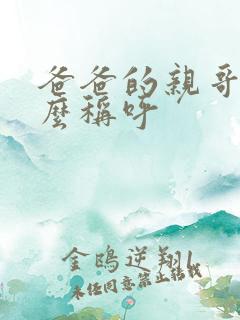 爸爸的親哥
麼稱呼
金鴎逆翔
未经同意禁止转载